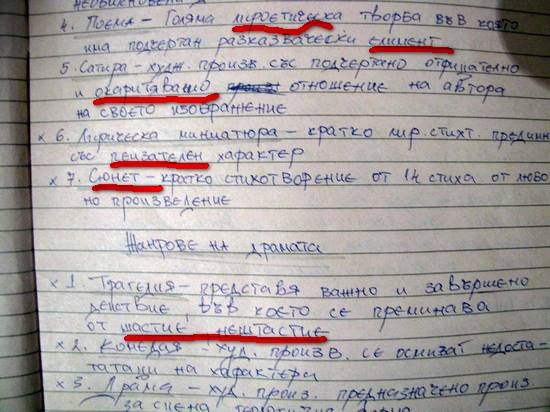 4. Поема - Голяма мироетическа творба във която
има подчертан разказвачески елимент
5. Сатира - худж. произв. със подчертано отрицателно
и окаритавашо отношение на автора
на своето изображение
х 6. Лирическа миниатюра - кратко лир. стихт. предимн
със пеизателен характер
х 7. Сюнет - кратко стихотворение от 14 стиха от любо
но произведение
Жанрове на драмата
х 1. Трагедия - представя важно и завършено
действие, във което се преминава
от шастие нештастие
х 2. Комедия - худ. произв. се осмиват недоста-
татаци на характера
х 3. Драма - худ. произ. предназначено произ.
за сцена